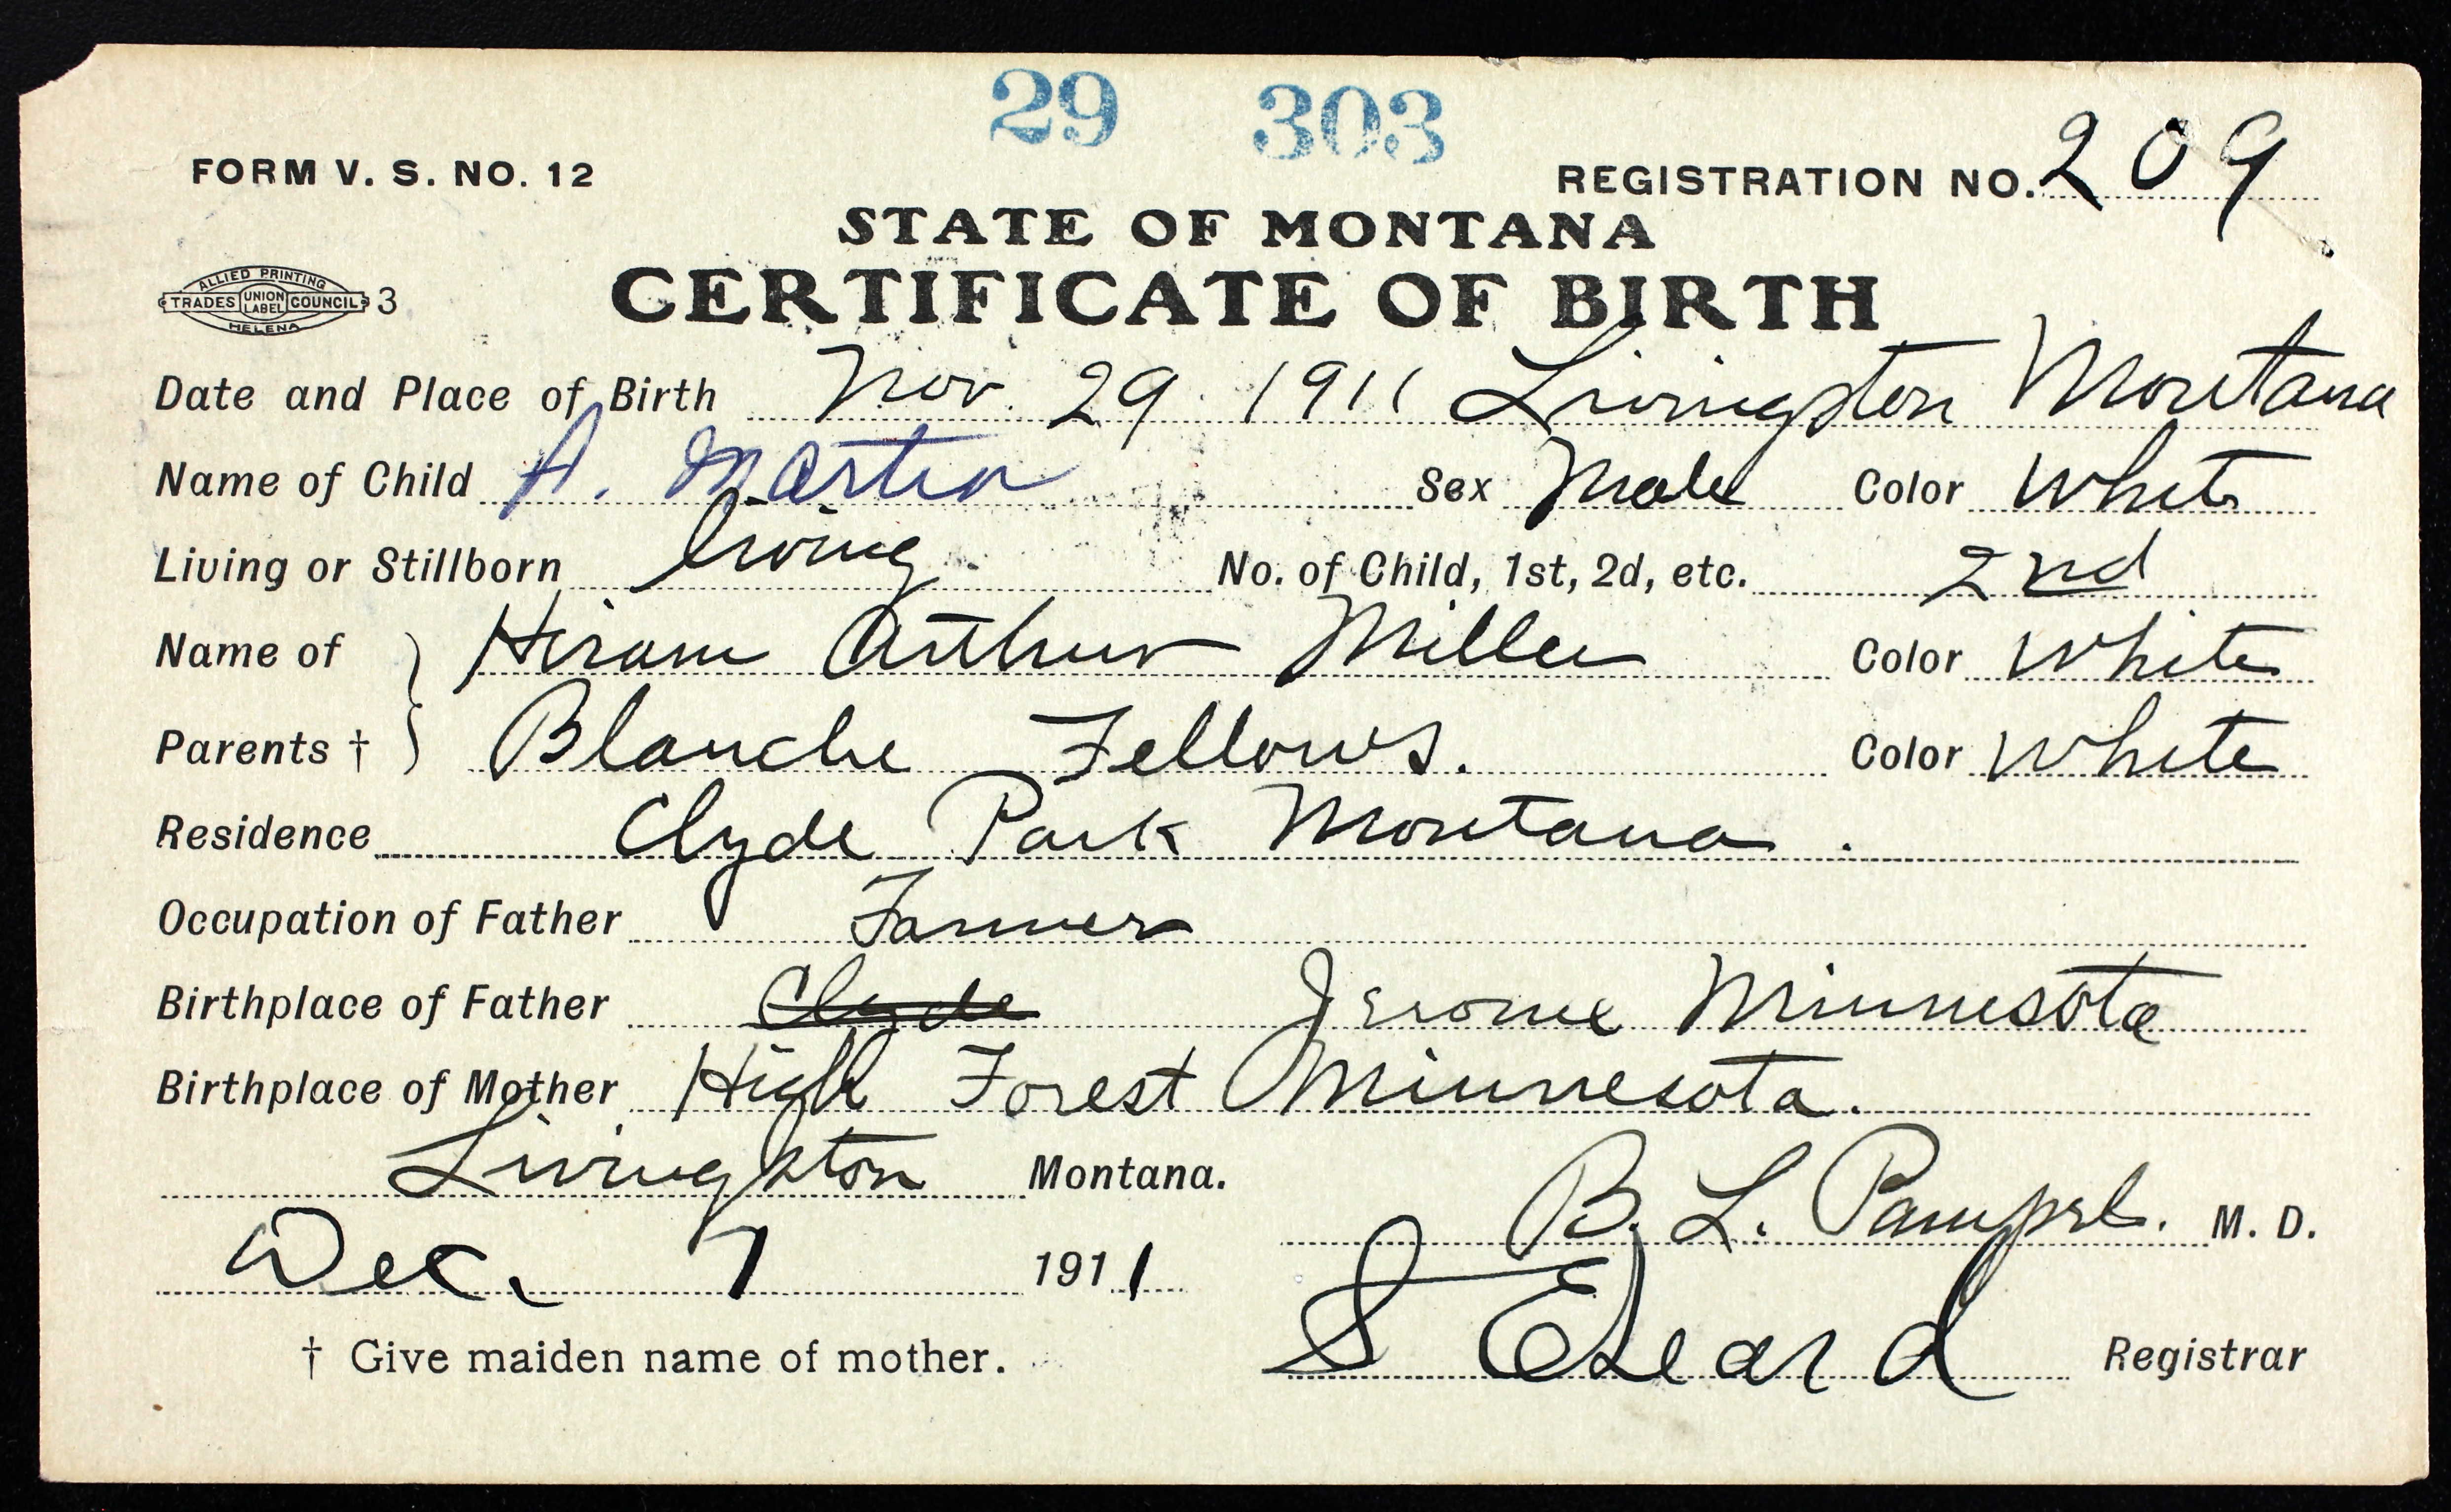 29 303
FORM V. S. NO. 12
REGISTRATION NO. 209
STATE OF MONTANA
ALLIED PRINTING
TRADES UNION LABEL COUNCIL 3
HELENA
CERTIFICATE OF BIRTH
Date and Place of Birth Nov. 29 1911 Livingston Montana
Name of Child A. Martin Sex Male Color White
Living or Stillborn living No. of Child, 1st, 2d, etc. 2nd
Name of Hiram Arthur Miller Color White
Parents † Blanche Fellows. Color White
Residence Clyde Park Montana.
Occupation of Father Farmer
Birthplace of Father Clyde Jerome Minnesota
Birthplace of Mother High Forest Minnesota.
Livingston Montana.
B. L. Pampel. M. D.
Dec. 7 1911
† Give maiden name of mother.
S Registrar